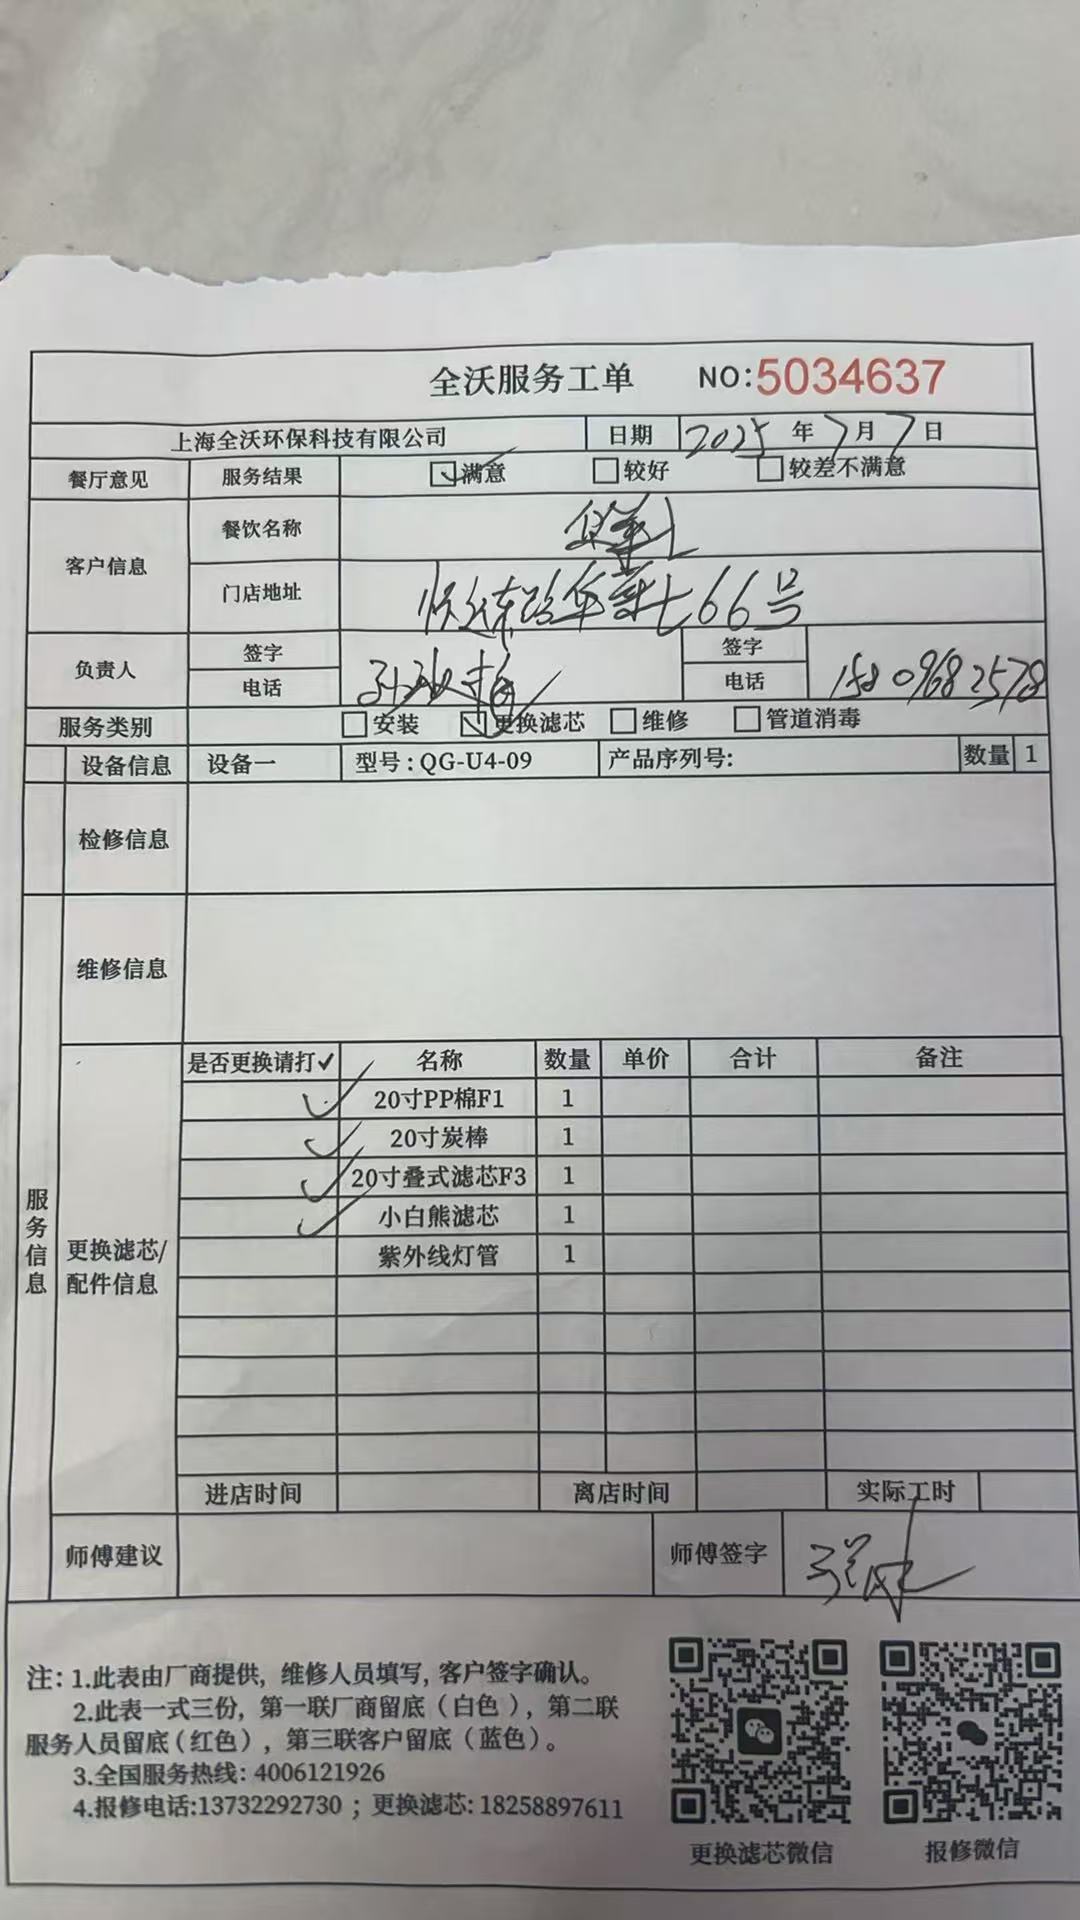 全沃服务工单 NO:5034637
上海全沃环保科技有限公司 日期 2025年7月7日
餐厅意见 服务结果 满意 较好 较差不满意
客户信息 餐饮名称
门店地址 66号
负责人 签字 签字
电话 电话 15809682578
服务类别 安装 更换滤芯 维修 管道消毒
设备信息 设备一 型号:QG-U4-09 产品序列号: 数量 1
检修信息
维修信息
服务信息
更换滤芯/配件信息
是否更换请打✓ 名称 数量 单价 合计 备注
✓ 20寸PP棉F1 1
✓ 20寸炭棒 1
✓ 20寸叠式滤芯F3 1
✓ 小白熊滤芯 1
紫外线灯管 1
进店时间 离店时间 实际工时
师傅建议 师傅签字
注: 1.此表由厂商提供, 维修人员填写, 客户签字确认。
2.此表一式三份, 第一联厂商留底(白色), 第二联
服务人员留底(红色), 第三联客户留底(蓝色)。
3.全国服务热线: 4006121926
4.报修电话:13732292730 ; 更换滤芯: 18258897611
更换滤芯微信 报修微信